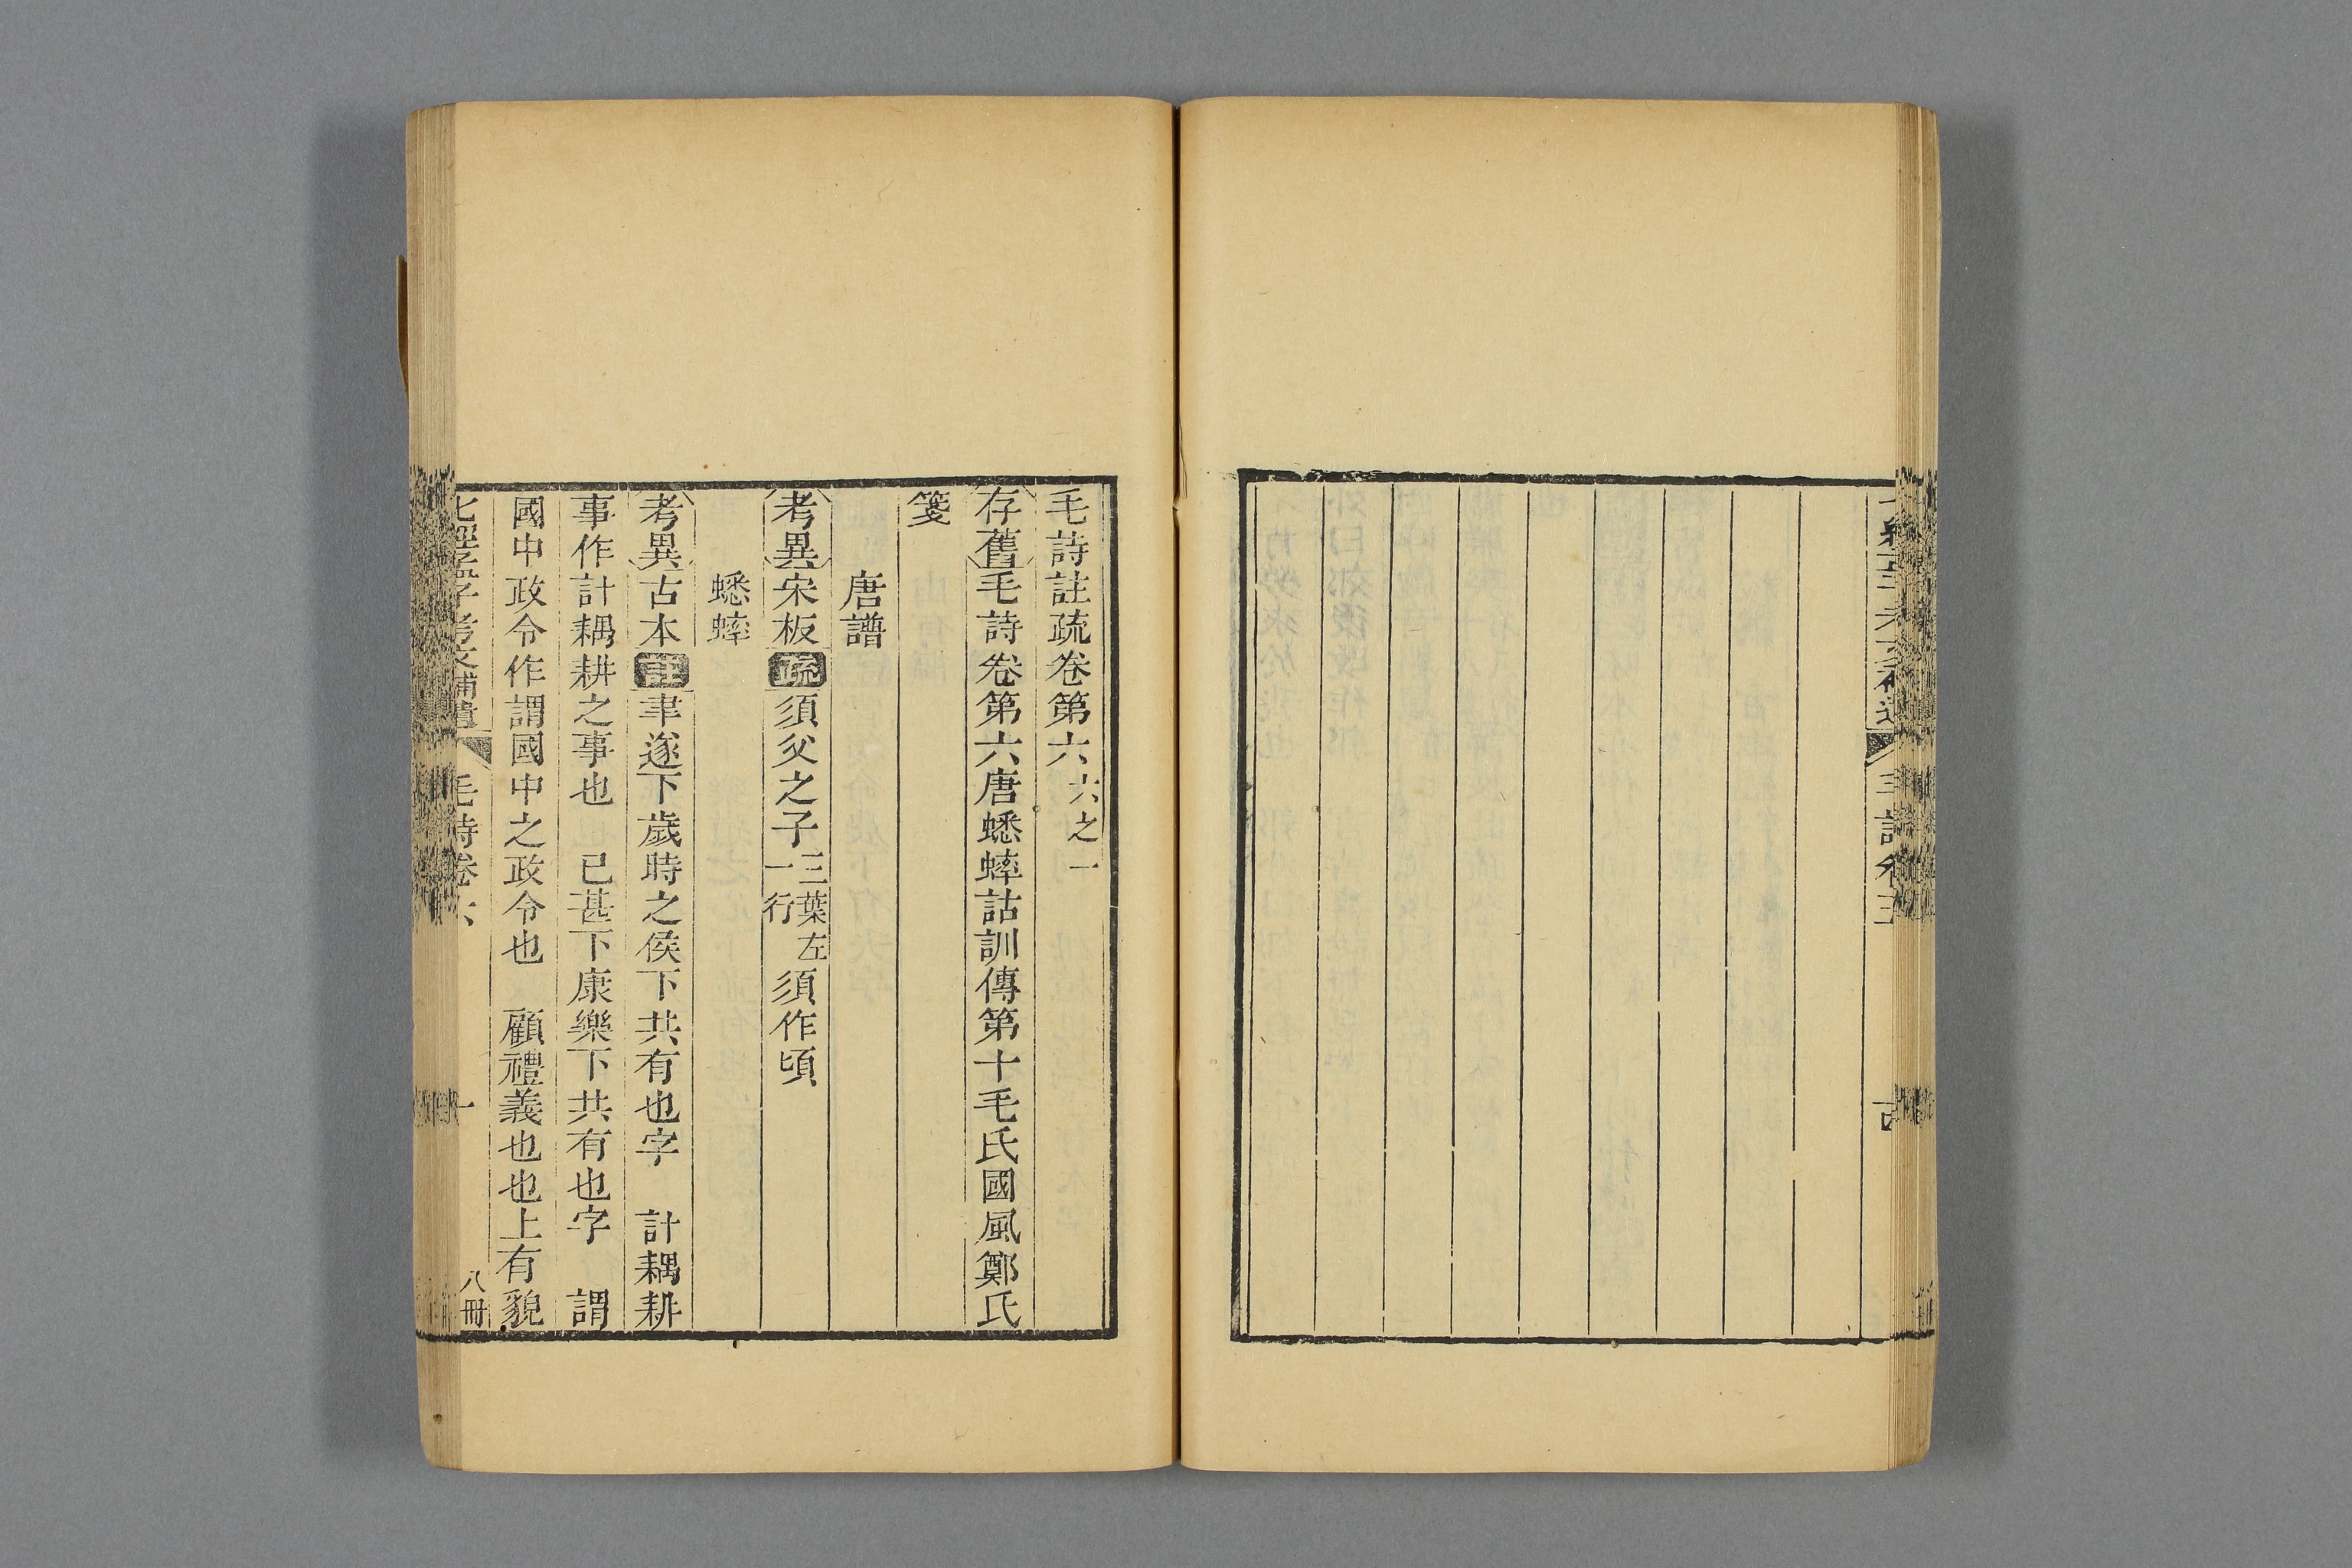 毛詩註疏卷第六 六之一
存舊 毛詩卷第六唐蟋蟀詁訓傳第十毛氏國風鄭氏
箋
唐譜
考異 宋板 疏 須父之子 三葉左一行 須作頃
蟋蟀
考異 古本 註 聿遂下歲時之侯下共有也字 計耦耕
事作計耦耕之事也 已甚下康樂下共有也字 謂
國中政令作謂國中之政令也 顧禮義也也上有貌
七經孟子考文補遺 毛詩卷六 一 八冊